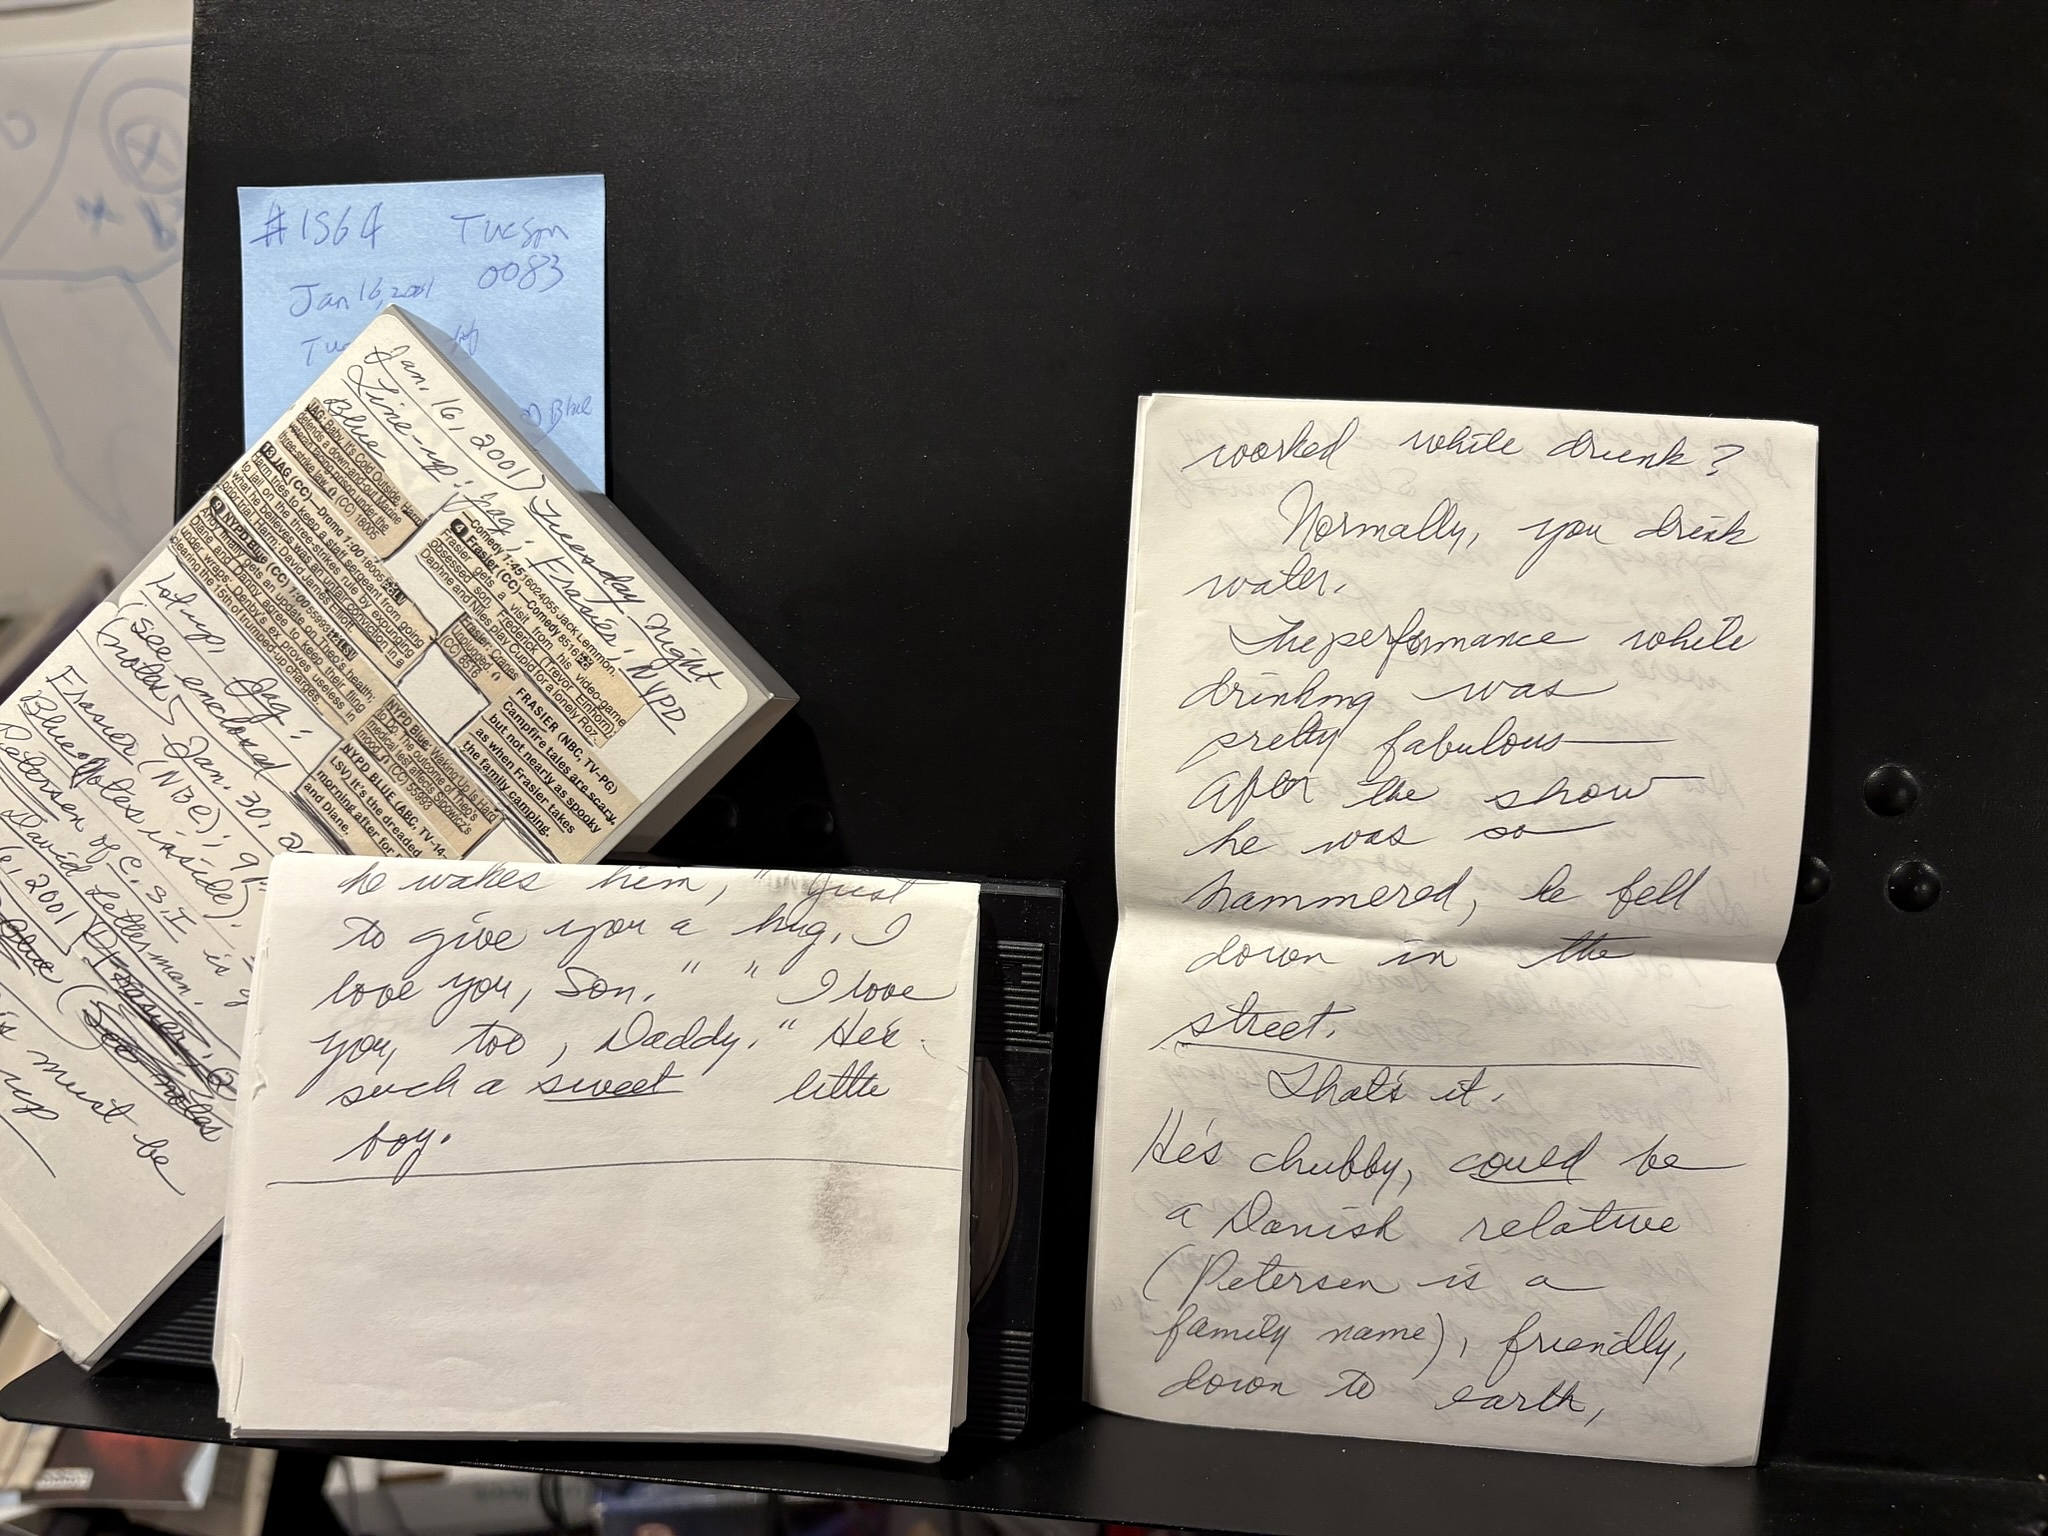 #1564 Tucson
0083
Jan 16, 2001
Blue
Jan. 16, 2001) Tuesday Night
Line-up: Jag; Frasier; NYPD
Blue
JAG: Baby, It's Cold Outside Harm
defends a down-and-out Marine
veteran facing prison under the
three-strike law. (CC) 16005
13 JAG (CC)—Drama 1:00 16005
Harm tries to keep a staff sergeant from going
to jail on the three-strikes rule by expunging
what he believes was an unfair conviction in a
prior trial. Harm: David James Elliott.
9 NYPD Blue (CC) 1:00 55993
Andy finally gets an update on Theo's health;
Diane and Danny agree to keep their fling
under wraps; Denby's ex proves useless in
clearing the 15th of trumped-up charges.
—Comedy 1:45 16024055 Jack Lemmon.
4 Frasier (CC)—Comedy 8516
Frasier gets a visit from his video-game
obsessed son, Frederick (Trevor Einhorn);
Daphne and Niles play Cupid for a lonely Roz.
Frasier: Cranes
Unplugged
(CC) 8516
FRASIER (NBC, TV-PG)
Campfire tales are scary,
but not nearly as spooky
as when Frasier takes
the family camping.
NYPD Blue: Waking Up Is Hard
to Do The outcome of Theo's
medical test affects Sipowicz's
mood. (CC) 55993
NYPD BLUE (ABC, TV-14-
LSV) It's the dreaded
morning after for
and Diane.
Jag:
(see enclosed
notes) Jan. 30,
Frasier (NBC); 9
Blue (Notes inside).
Petersen of C.S.I is
David Letterman.
2001 Frasier,
(See notes
must be
up
he wakes him, "Just
to give you a hug. I
love you, Son." "I love
you, too, Daddy." He's
such a sweet little
boy.
worked while drunk?
Normally, you drink
water.
The performance while
drinking was
pretty fabulous—
After the show
he was so
hammered, he fell
down in the
street.
That's it.
He's chubby, could be
a Danish relative
(Petersen is a
family name), friendly,
down to earth,